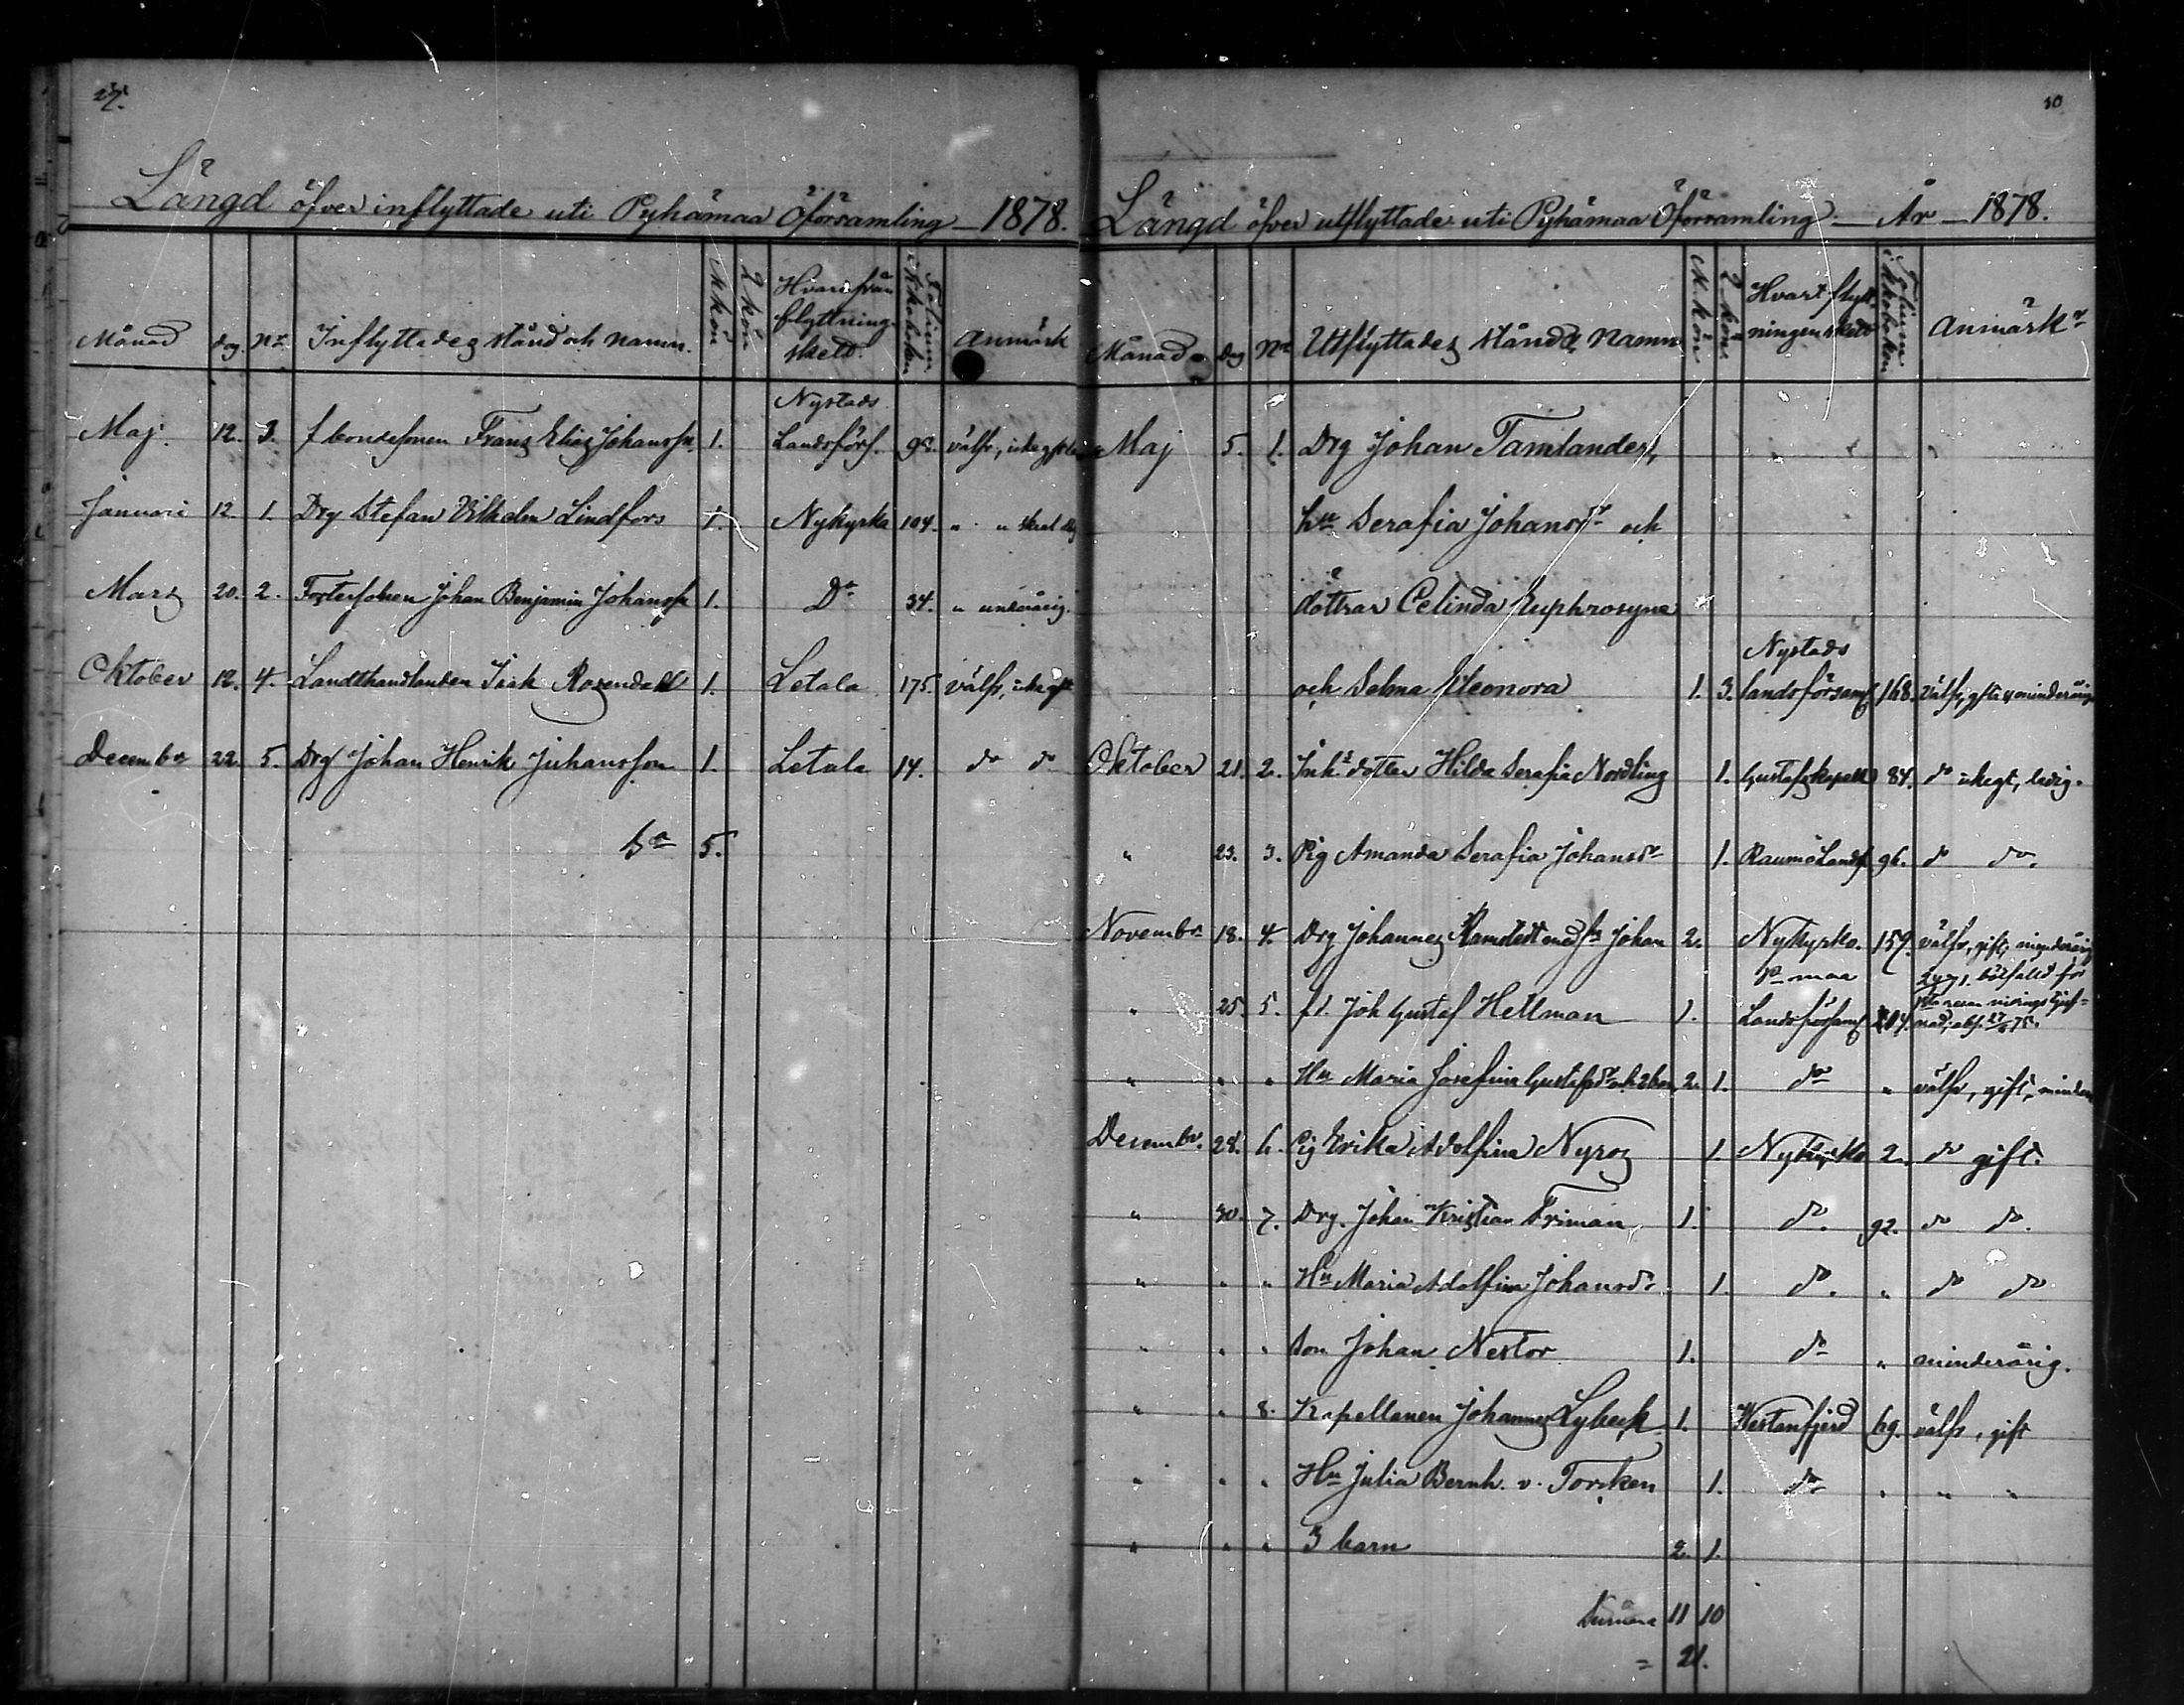 Längd öfver inflyttade uti Pyhämaa Öförsamling 1878.
Månad dag. No. Inflyttades stånd och namn. M kön Q kön Hvarifrån flyttning skett. Folium i Kkoboken Anmärk
Nystads
Maj. 12. 3. f bondesonen Frans Elias Johansson 1. Landsförs. välfr.,
Januari 12. 1. Drg Stefan Vilhelm Lindfors 1. Nykyrka 104. " "
Mars 20. 2. Fostersonen Johan Benjamin Johansson 1. Do 34. "
Oktober 12. 4. Landthandlanden Isak Rosendahl 1. Letala 175. välfr,
Decembr 22. 5. Drg Johan Henrik Juhansson 1. Letala 14. do do
Sa 5.
10
Längd öfver utflyttade uti Pyhämaa Öförsamling År 1878.
Månad Dag No Utflyttades stånd & Namn M. kön Q kön Hvart flyttningen skett Folium i Kkoboken Anmärkn
Maj 5. 1. Drg Johan Tamlander,
hu Serafia Johansdr och
döttrar Celinda Euphrosyna
Nystads
och Selma Eleonora 1. 3. landsförsaml 168. välfr, gifta & minderåriga
Oktober 21. 2. Inh:s dotter Hilda Serafia Nordling 1. Gustafs kapell 84. do ledig.
" 23. 3. Pig Amanda Serafia Johansdr 1. Raumo Landsf 96. do do.
Novembr 18. 4. Drg Johannes Ramstedt med sn Johan 2. Nykyrko. 159. välfr, gift, minderårig
P maa
" 25. 5. fd. Joh Gustaf Hellman 1. Landsförsaml 204.
" " " Hu Maria Josefina Gustafsdr och 2 barn 2. 1. do " välfr, gift, minder
Decembr. 28. 6. Pig Erika Adolfina Nyroos 1. Nykyrko 2. do gift.
" 30. 7. Drg. Johan Kristian Friman 1. do. 92. do do.
" " " Hu Maria Adolfina Johansdr 1. do. " do do
" " " Son Johan Nestor 1. do " minderårig.
" " 8. Kapellanen Johannes Lybeck 1. Westanfjerd 69. välfr, gift
" " " Hu Julia Bernh. v. Torcken 1. do " " "
" " " 3 barn 2. 1.
Summa 11 10
= 21.